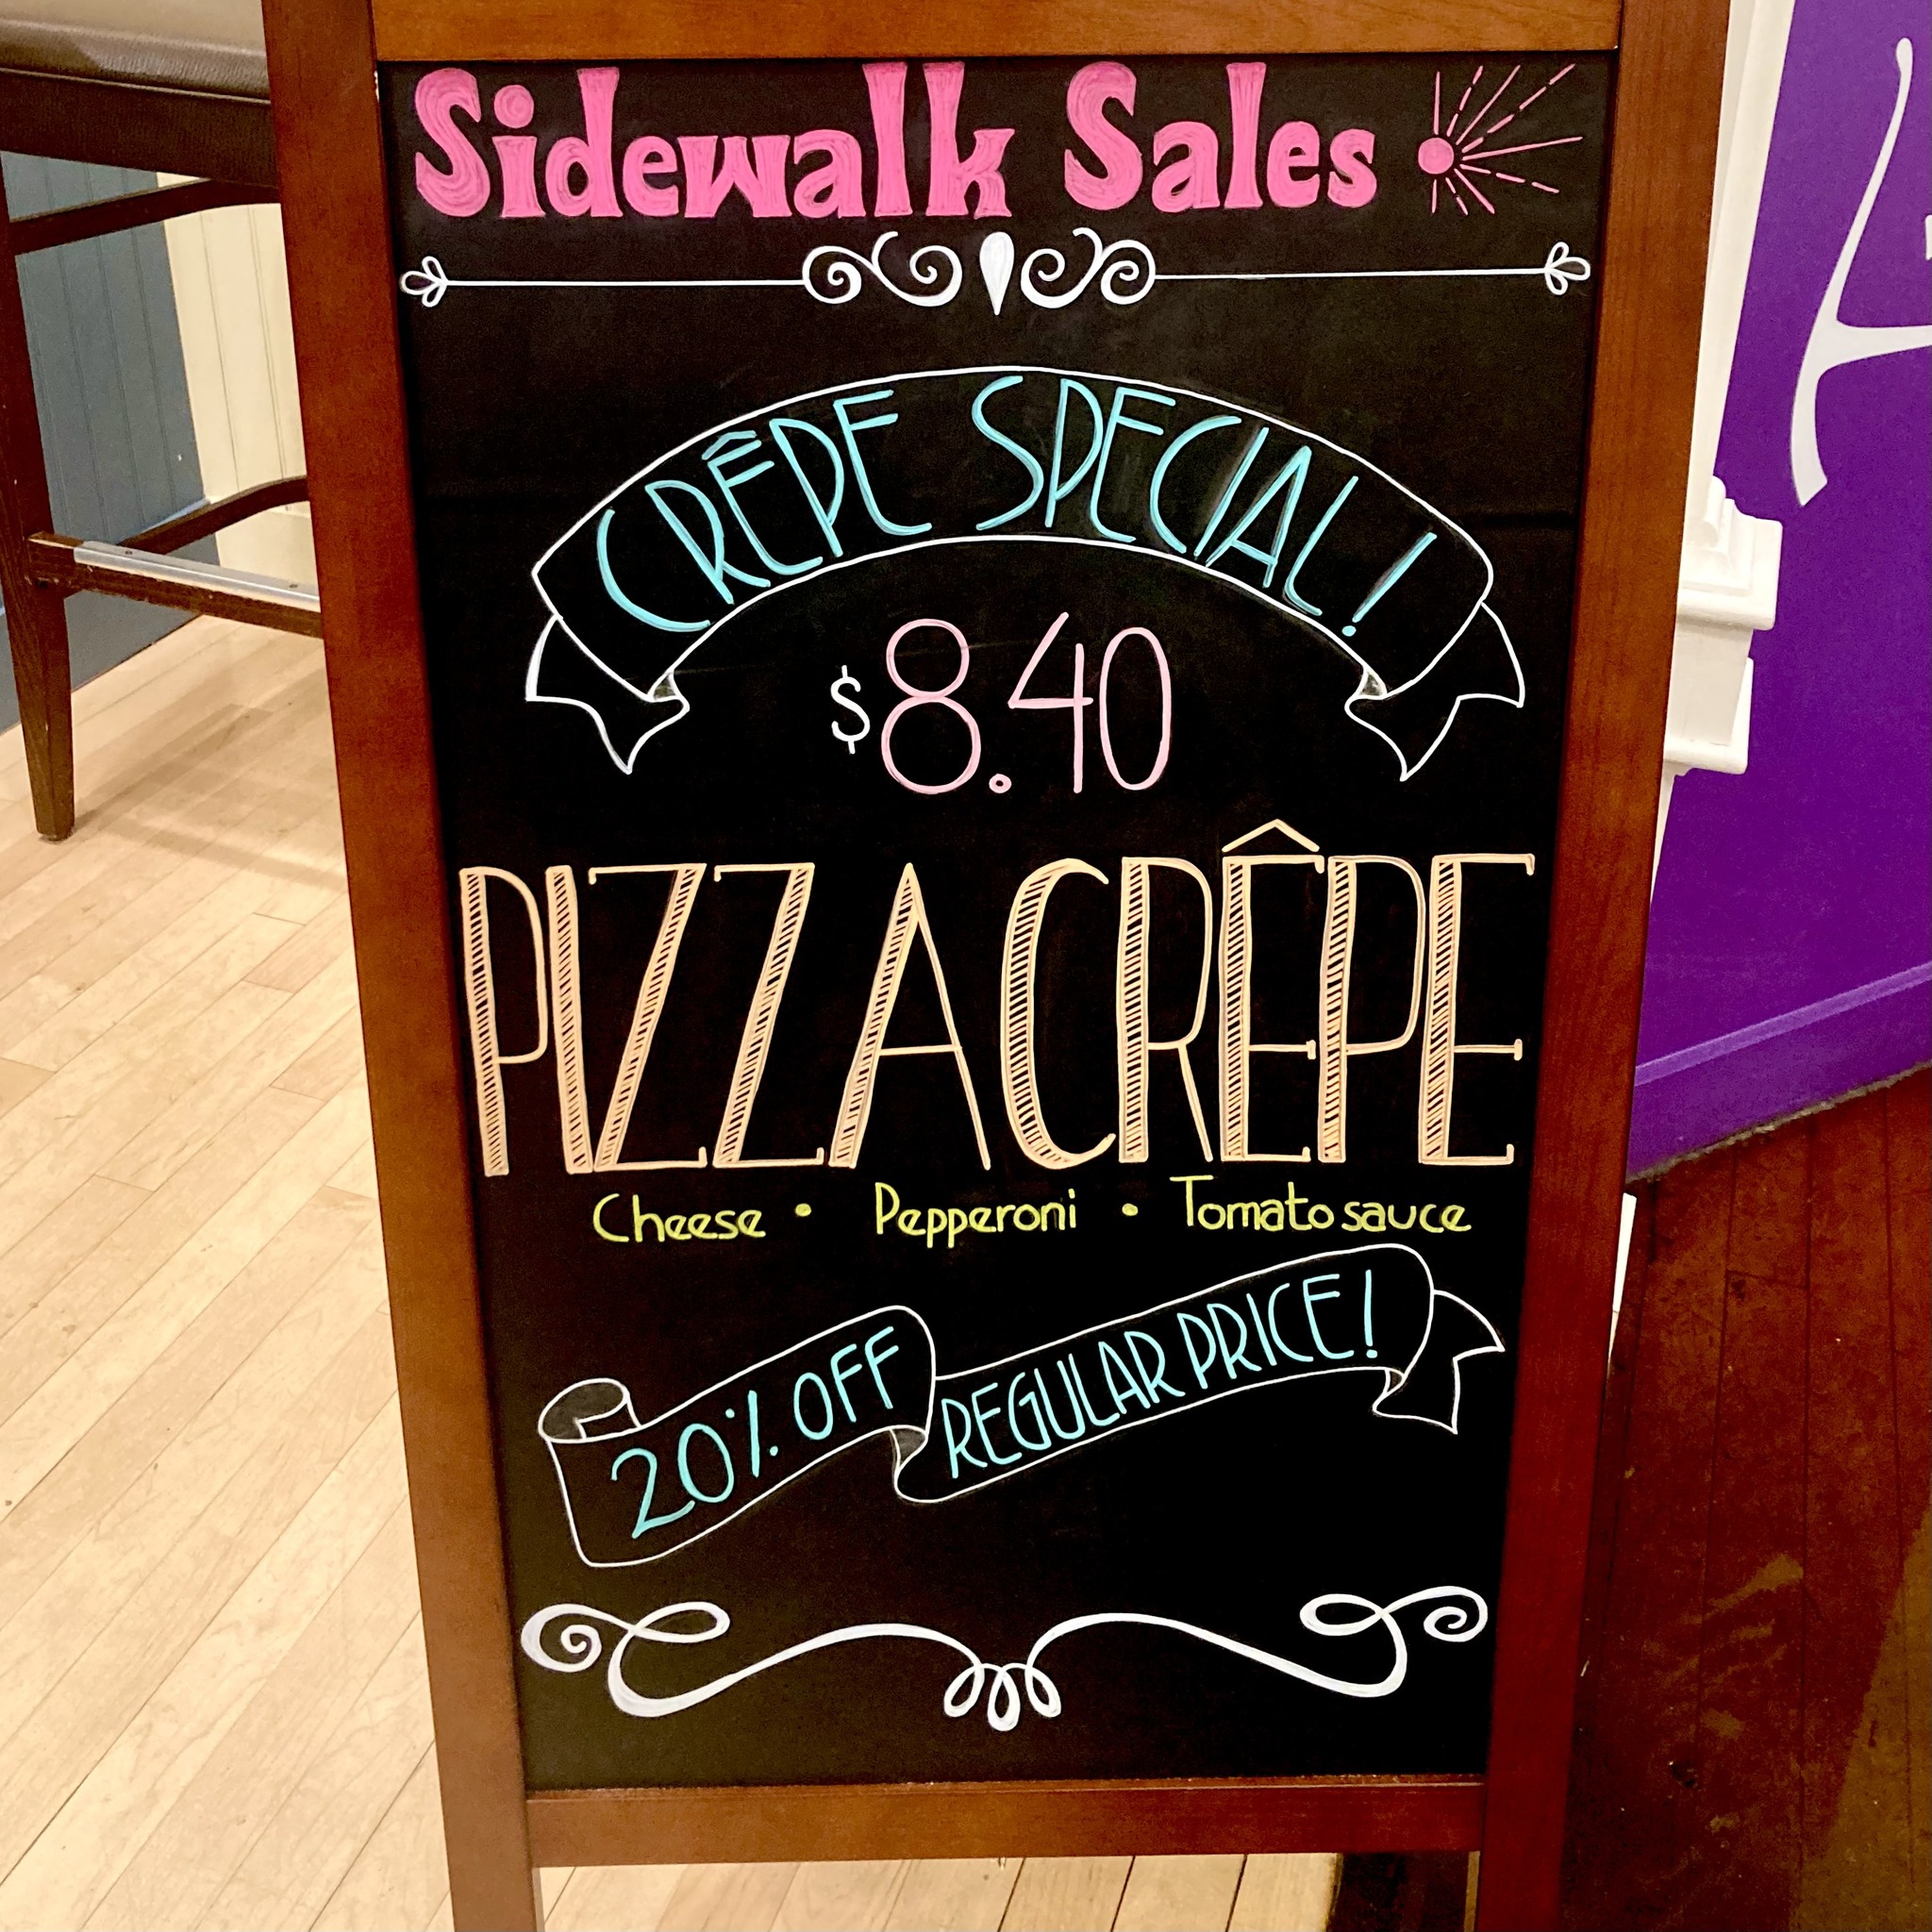 Sidewalk Sales
CRÊPE SPECIAL!
$8.40
PIZZA CRÊPE
Cheese • Pepperoni • Tomato sauce
20% OFF REGULAR PRICE!